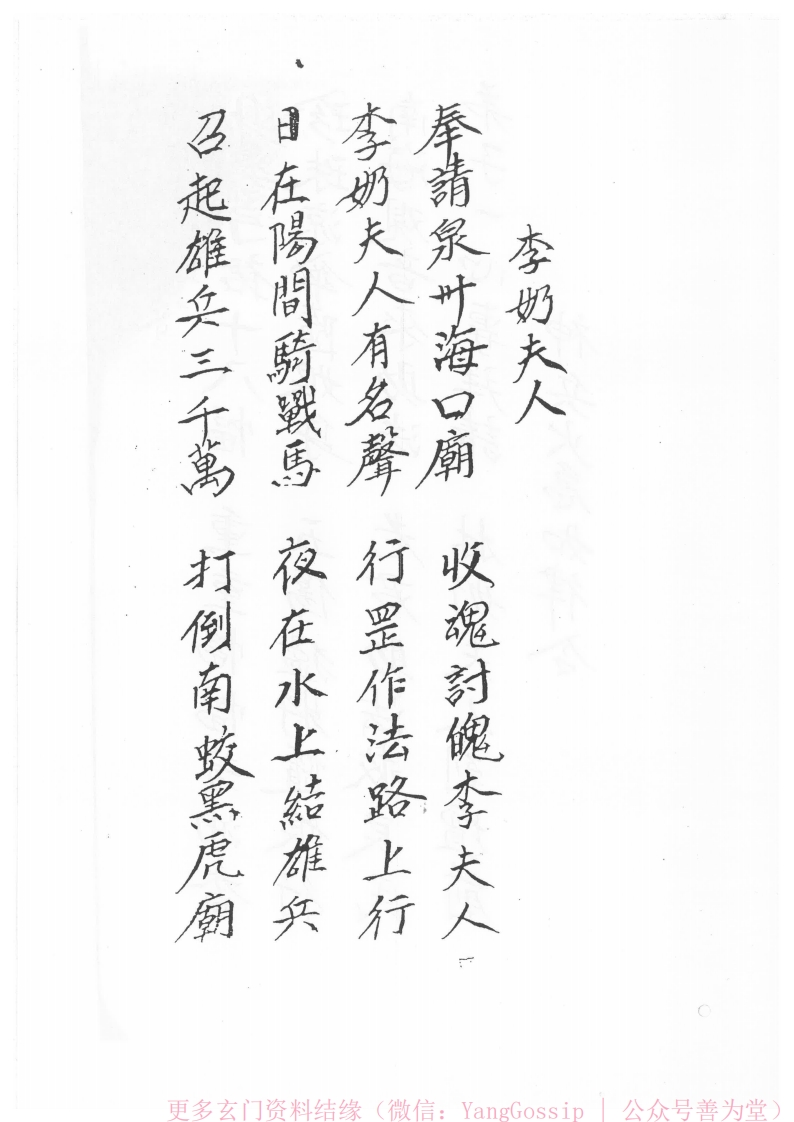 李奶夫人
奉請泉卅海口廟 收魂討魄李夫人
李奶夫人有名聲 行罡作法路上行
日在陽間騎戰馬 夜在水上結雄兵
召起雄兵三千萬 打倒南蛟黑虎廟
更多玄门资料结缘（微信：YangGossip | 公众号善为堂）